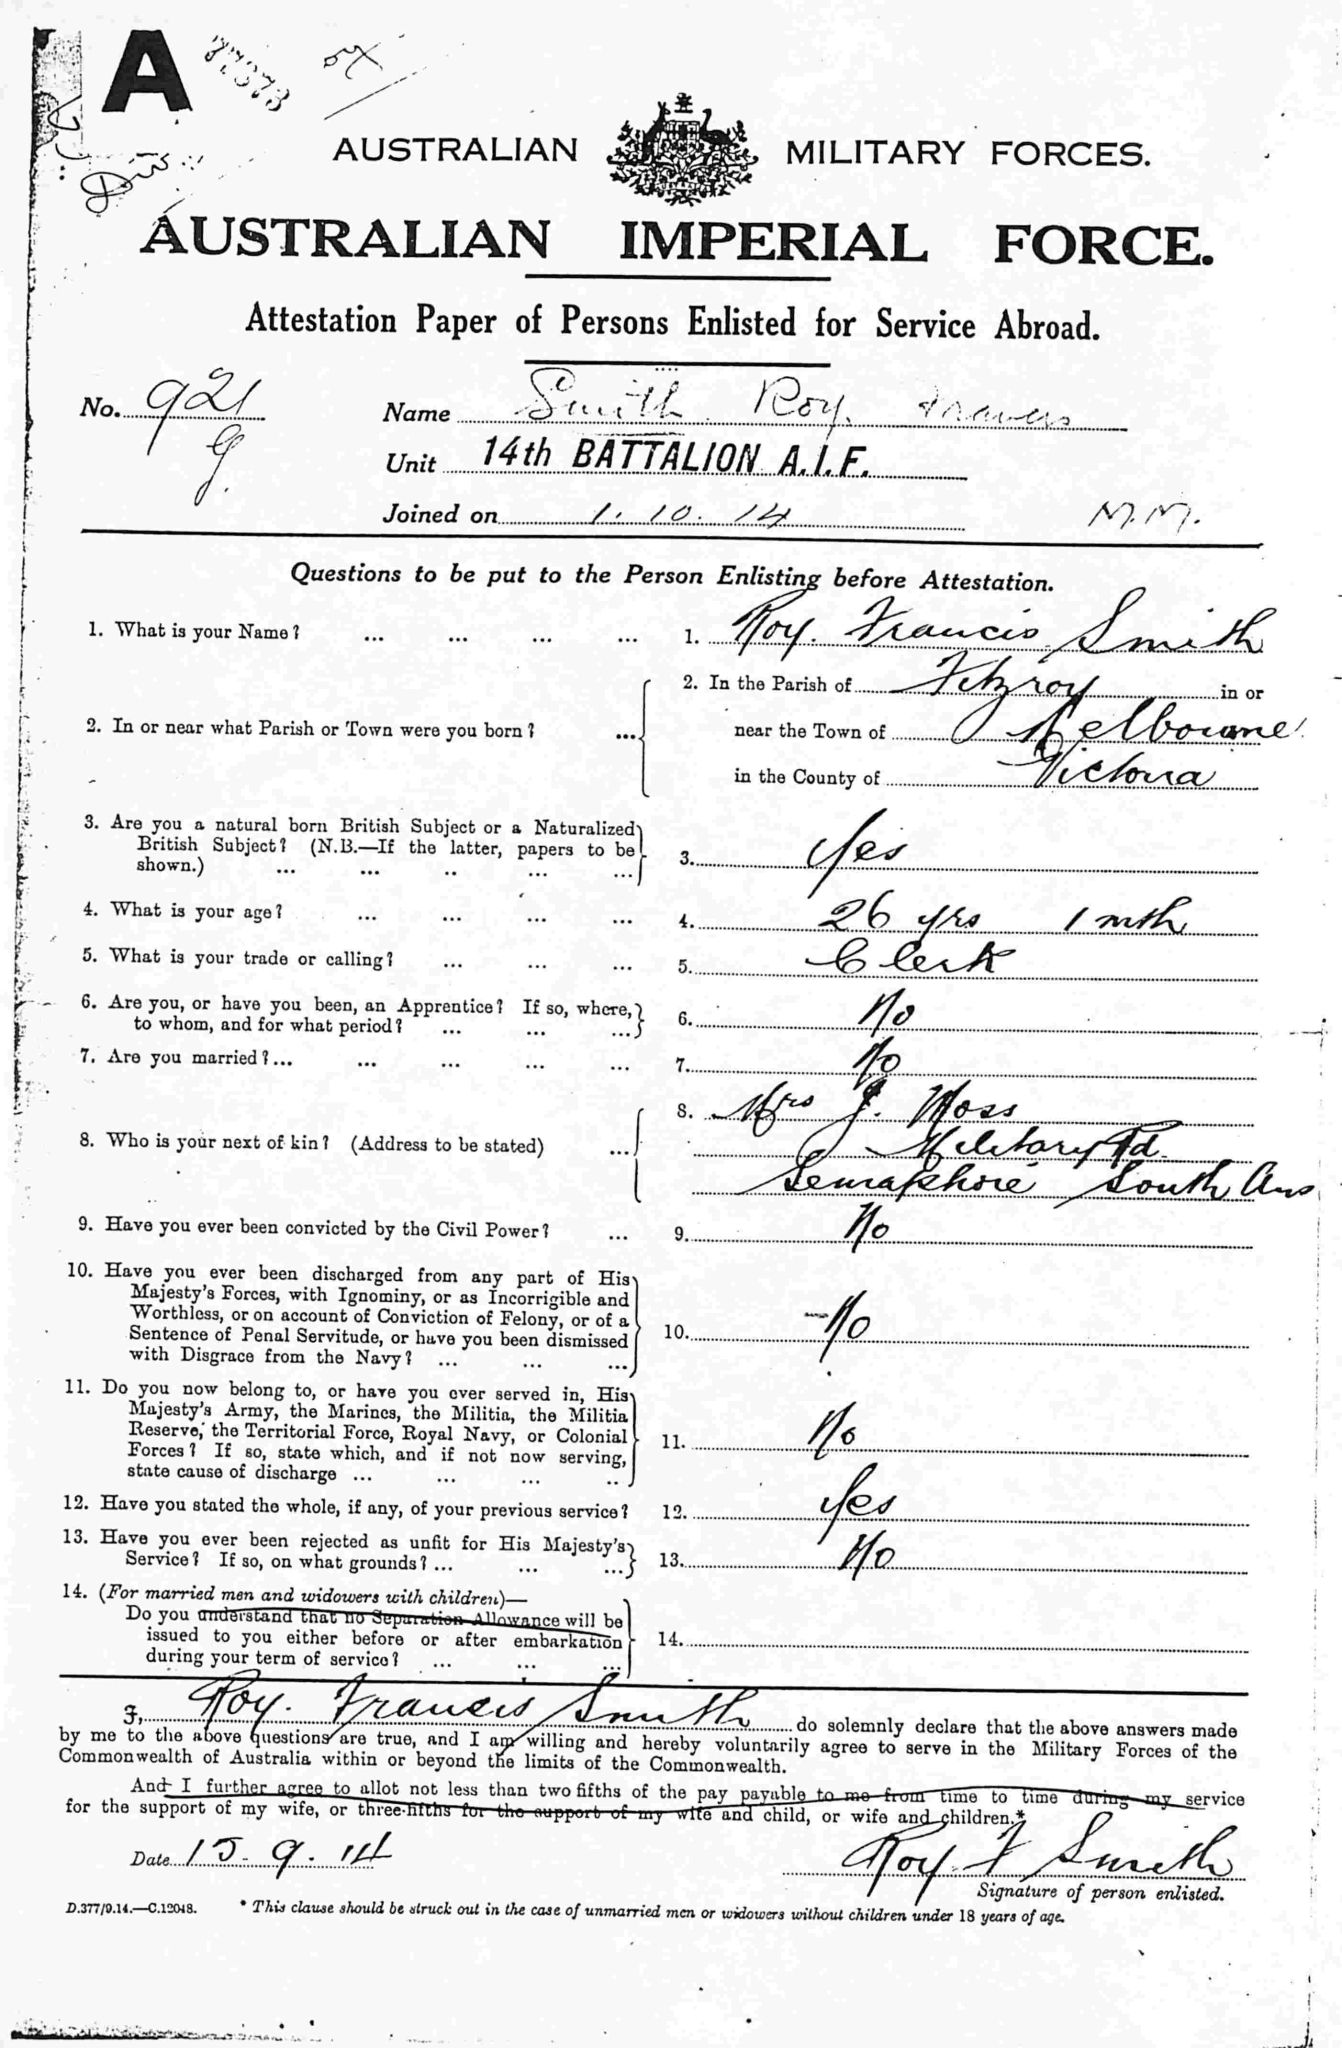 A
AUSTRALIAN MILITARY FORCES.
AUSTRALIAN IMPERIAL FORCE.
Attestation Paper of Persons Enlisted for Service Abroad.
No. 921 Name Smith Roy. Francis
G.
Unit 14th BATTALION A.I.F.
Joined on 1. 10. 14 M.M.
Questions to be put to the Person Enlisting before Attestation.
1. What is your Name? ... ... ... ... 1. Roy. Francis Smith
2. In the Parish of Fitzroy in or
2. In or near what Parish or Town were you born? ... near the Town of Melbourne
in the County of Victoria
3. Are you a natural born British Subject or a Naturalized
British Subject? (N.B.—If the latter, papers to be
shown.) ... ... .. ... ... 3. Yes
4. What is your age? ... ... ... ... 4. 26 yrs 1 mth
5. What is your trade or calling? ... ... ... 5. Clerk
6. Are you, or have you been, an Apprentice? If so, where,
to whom, and for what period? ... ... ... 6. No
7. Are you married?... ... ... ... ... 7. No
8. Mrs J. Moss
8. Who is your next of kin? (Address to be stated) ... Military Rd.
Semaphore South Aus
9. Have you ever been convicted by the Civil Power? ... 9. No
10. Have you ever been discharged from any part of His
Majesty's Forces, with Ignominy, or as Incorrigible and
Worthless, or on account of Conviction of Felony, or of a
Sentence of Penal Servitude, or have you been dismissed
with Disgrace from the Navy? ... ... ... 10. No
11. Do you now belong to, or have you ever served in, His
Majesty's Army, the Marines, the Militia, the Militia
Reserve, the Territorial Force, Royal Navy, or Colonial
Forces? If so, state which, and if not now serving,
state cause of discharge ... ... ... .. 11. No
12. Have you stated the whole, if any, of your previous service? 12. Yes
13. Have you ever been rejected as unfit for His Majesty's
Service? If so, on what grounds? ... ... ... 13. No
14. (For married men and widowers with children)—
Do you understand that no Separation Allowance will be
issued to you either before or after embarkation
during your term of service? ... ... ... 14.
I, Roy. Francis Smith do solemnly declare that the above answers made
by me to the above questions are true, and I am willing and hereby voluntarily agree to serve in the Military Forces of the
Commonwealth of Australia within or beyond the limits of the Commonwealth.
And I further agree to allot not less than two fifths of the pay payable to me from time to time during my service
for the support of my wife, or three-fifths for the support of my wife and child, or wife and children.*
Date 15. 9. 14 Roy. F Smith
Signature of person enlisted.
D.377/9.14.—C.12048. * This clause should be struck out in the case of unmarried men or widowers without children under 18 years of age.